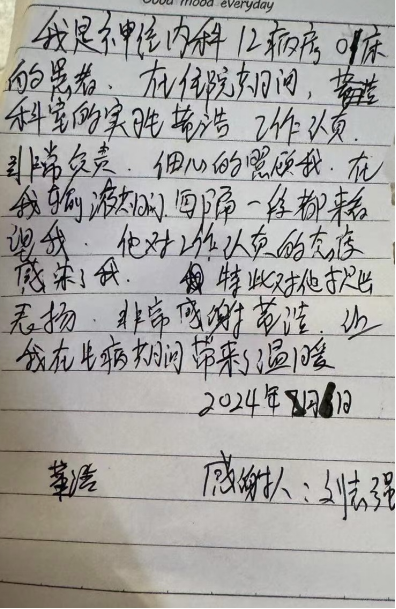 Good mood everyday
我是神经内科12病房01床
的患者. 在住院期间,
科室的实习 工作认真.
非常负责. 细心的照顾我. 在
我 期间 回隔一段都来看
望我. 他对工作认真的态度
感染了我. 特此对他提出
表扬. 非常感谢 让
我在生病期间带来了温暖
2024年8月6日
感谢人:刘志强